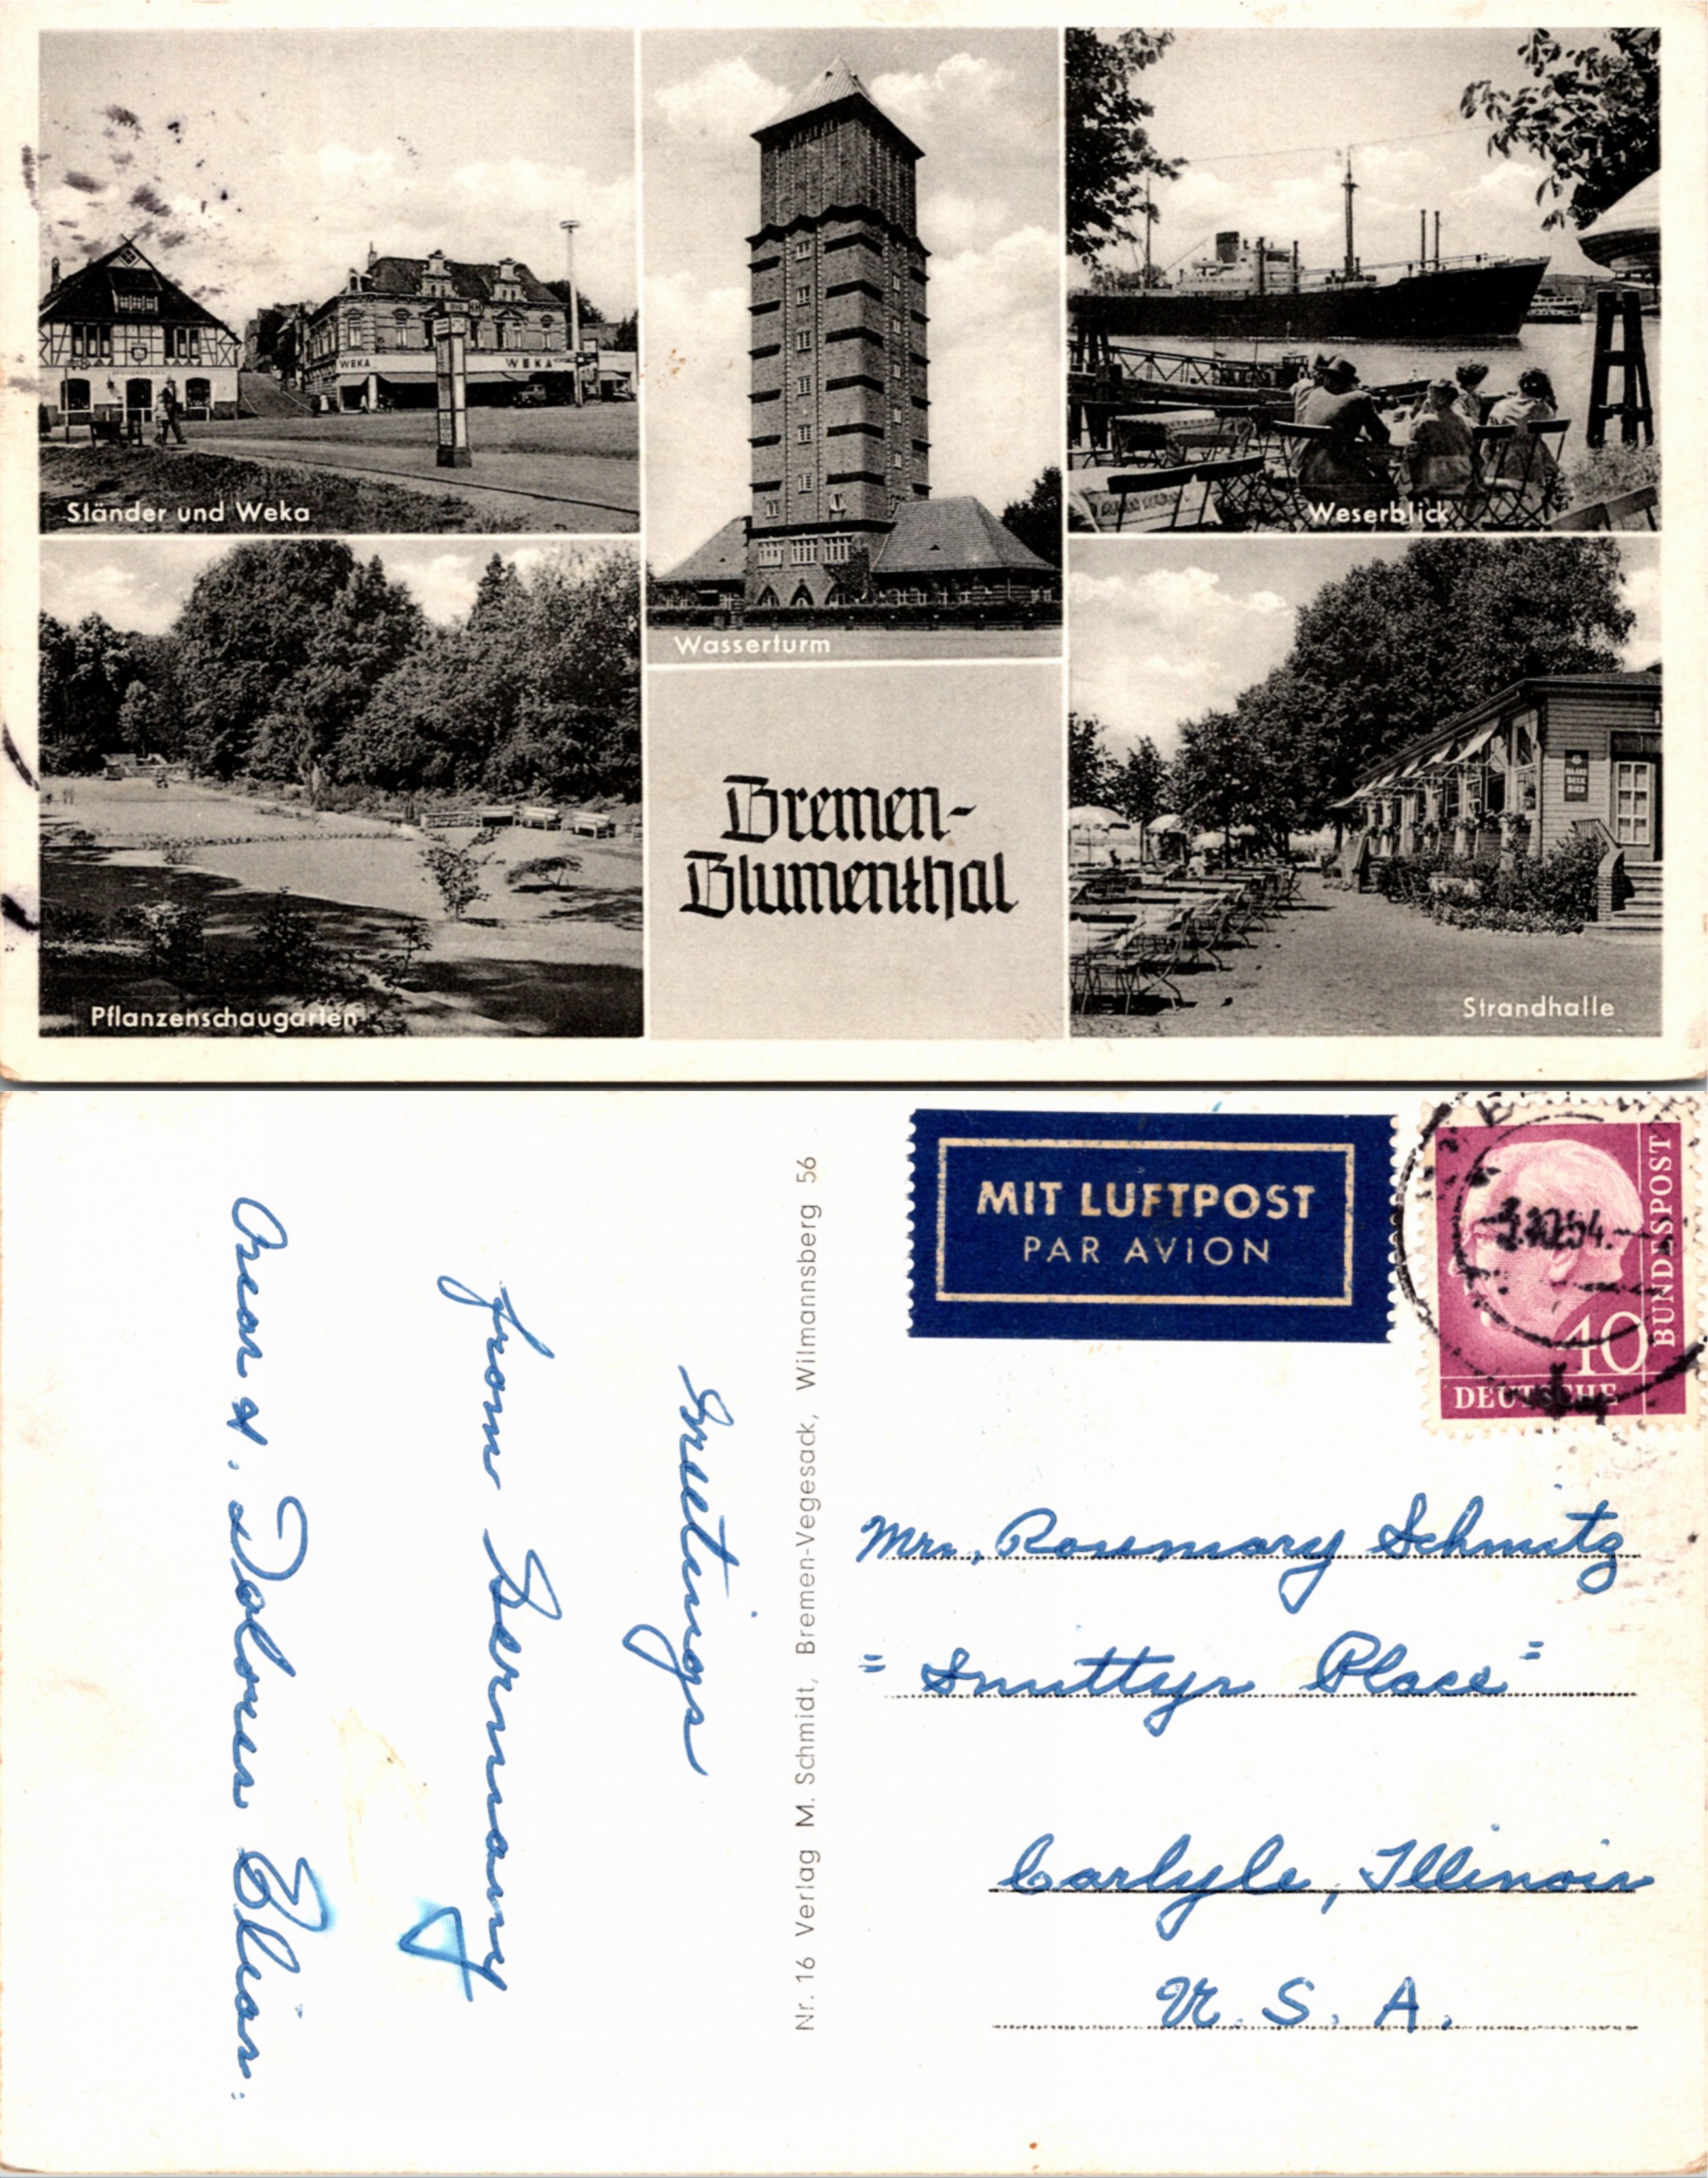 WEKA
WEKA
Ständer und Weka
Wasserturm
Weserblick
Pflanzenschaugarten
Bremen-
Blumenthal
HAAKE
BECK
BIER
Strandhalle
MIT LUFTPOST
PAR AVION
BUNDESPOST
40
DEUTSCHE
Nr. 16 Verlag M. Schmidt, Bremen-Vegesack, Wilmannsberg 56
Greetings
from Germany
Oscar &. Dolores
Mrs. Rosemary Schmitz
"Smittys Place"
Carlyle, Illinois
U. S. A.